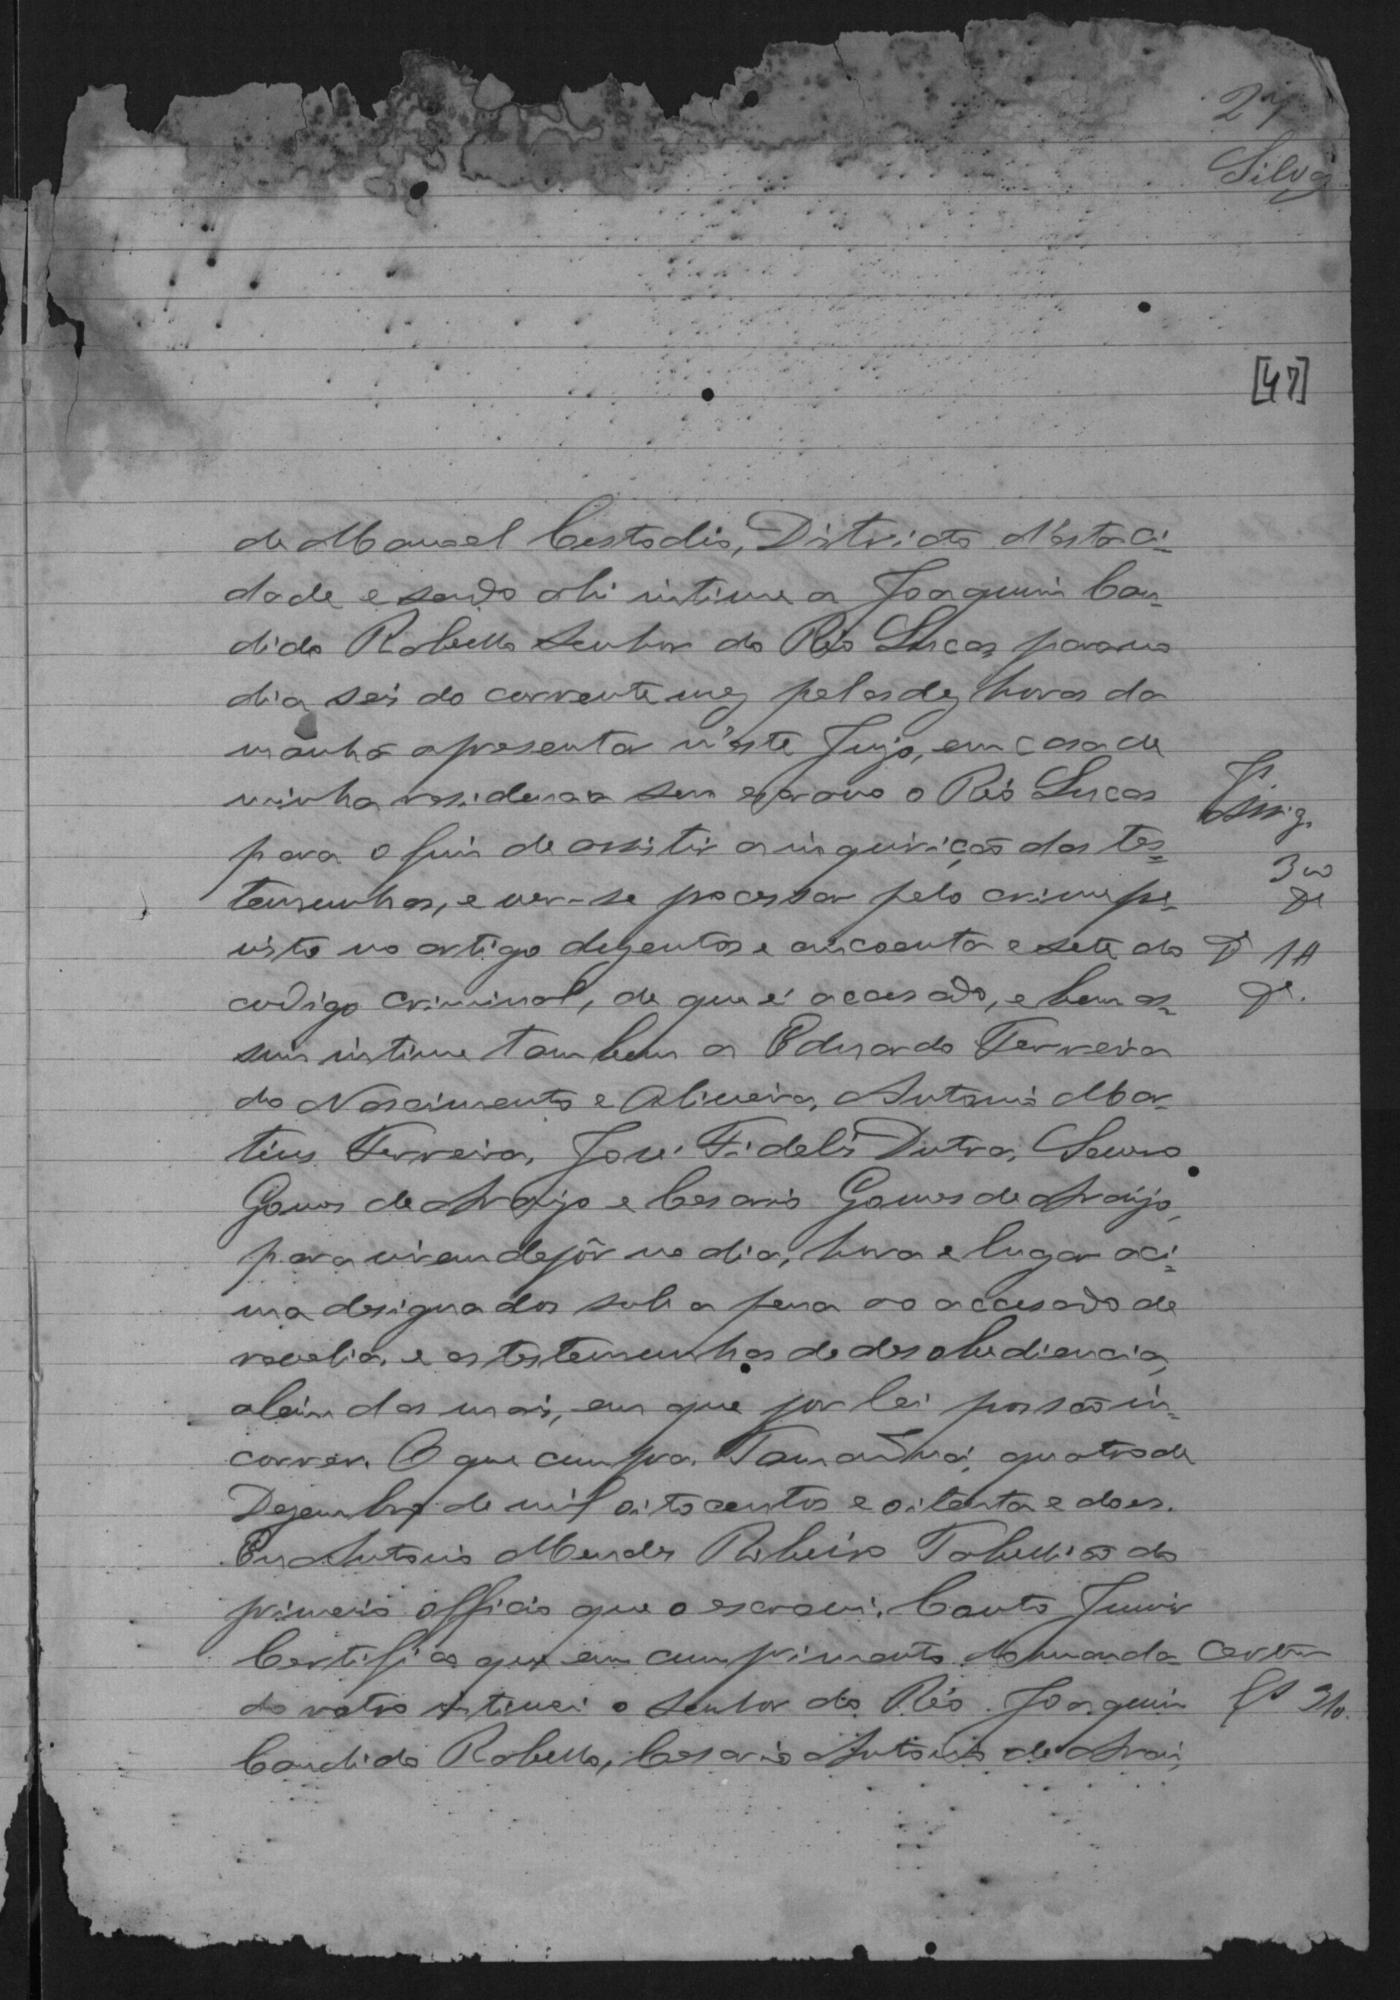 27
Silva
[47]
de Manoel Custodio, Districto d'esta ci-
dade e sendo ahi intime a Joaquim Can-
dido Rabello senhor do Réo Lucas para no
dia seis do corrente mez pelas dez horas da
manhã apresentar n'este Juizo, em casa de
minha residencia seu escravo o Réo Lucas
para o fim de assistir a inquirição das tes-
temunhas, e ver-se processar pelo crime pre-
visto no artigo dezentos e cincoenta e sete do
codigo criminal, de que é accusado, e bem as-
sim intime tambem a Eduardo Ferreira
do Nascimento e Oliveira, Antonio Mar-
tins Ferreira, José Fidelis Dutra,
Gomes de Araujo e Cesario Gomes de Araujo,
para virem depôr no dia, hora e lugar aci-
ma designados sob a pena ao accusado de
revelia, e as testemunhas de desobediencia,
alem das mais, em que por lei possão in-
correr. O que cumpra. quatro de
Dezembro de mil oitocentos e oitenta e does.
Eu Antonio Mendes Ribeiro Tabellião do
primeiro officio que o escrevi. Canto Junior
Certifico que em cumprimento do manda-
do retro intimei o senhor do Réo Joaquim
Candido Rabello, Cesario Antonio de Arau-
300